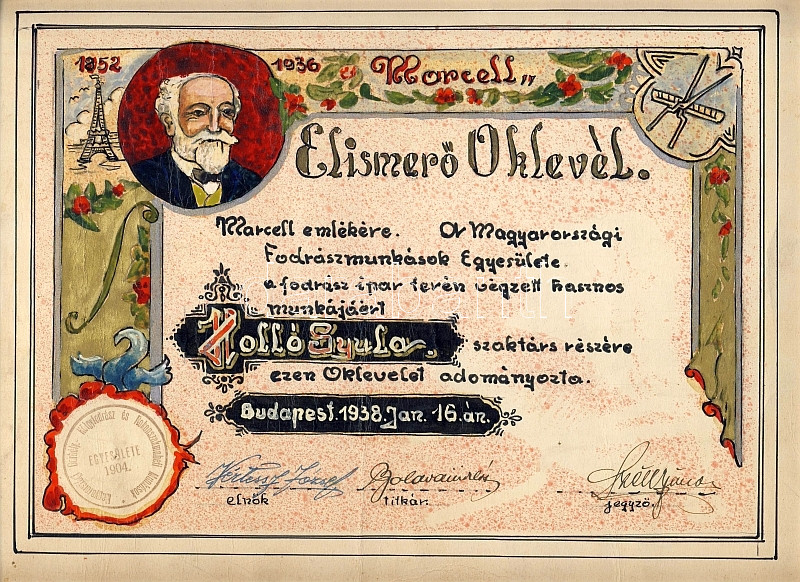 1852 1936 Marcell,,
Elismerő Oklevèl.
Marcell emlékére. A Magyarországi
Fodrászmunkások Egyesülete
a fodrász ipar terén végzett hasznos
munkájáért
Holló Gyula. szaktárs részére
ezen Oklevelet adományozta.
Budapest.1938.Jan.16.án.
elnök titkár. jegyző.
EGYESÜLETE
1904.